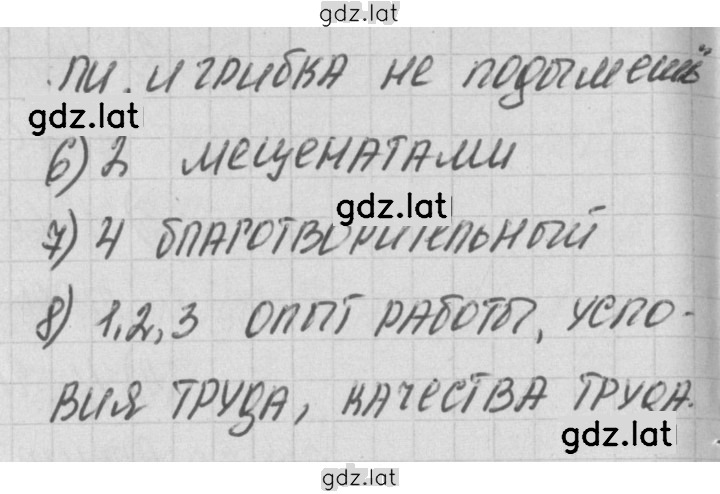 gdz.lat
.ли. и грибка не подымешь"
gdz.lat
6) 2 меценатами
gdz.lat
7) 4 благотворительный
8) 1,2,3 опыт работы, усло-
вия труда, качества труда.
gdz.lat
gdz.lat